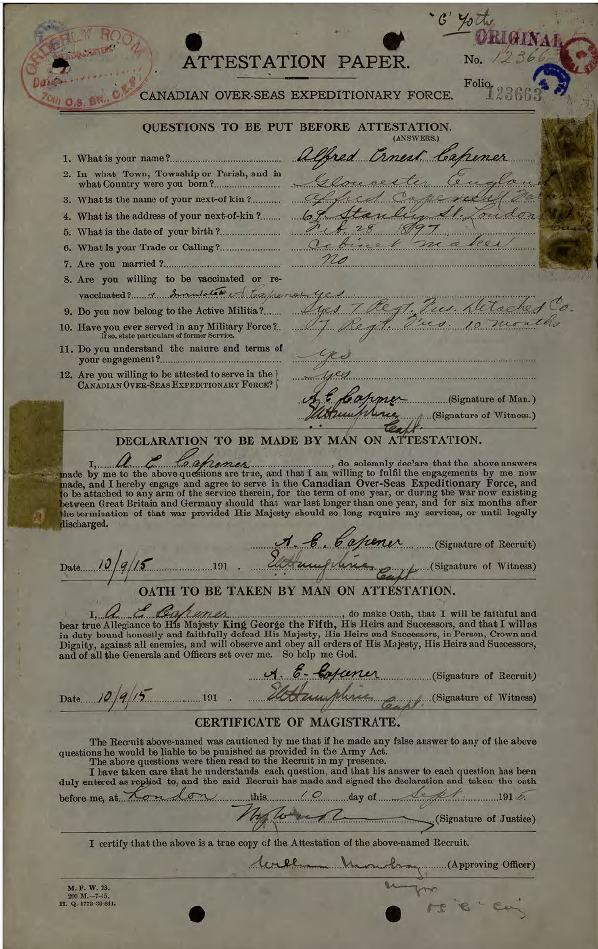 "C" 70th
ORIGINAL
ORDERLY ROOM
70TH O.S. BN., C.E.F.
ATTESTATION PAPER.
No. 123663
Folio.
123663
CANADIAN OVER-SEAS EXPEDITIONARY FORCE.
QUESTIONS TO BE PUT BEFORE ATTESTATION.
(ANSWERS.)
1. What is your name? Alfred Ernest Capener
2. In what Town, Township or Parish, and in
what Country were you born? Gloucester England
3. What is the name of your next-of-kin? Alfred Capener
4. What is the address of your next-of-kin? Stanley St. London
5. What is the date of your birth? Feb 28 1897
6. What is your Trade or Calling? Cabinet maker
7. Are you married? no
8. Are you willing to be vaccinated or re-
vaccinated? A E Capener yes
9. Do you now belong to the Active Militia? yes 7 Regt. Fus. Detached Co.
10. Have you ever served in any Military Force? 7 Regt. Fus. 10 months
If so, state particulars of former Service.
11. Do you understand the nature and terms of
your engagement? yes
12. Are you willing to be attested to serve in the
CANADIAN OVER-SEAS EXPEDITIONARY FORCE? yes
A E Capener (Signature of Man.)
Capt. (Signature of Witness.)
DECLARATION TO BE MADE BY MAN ON ATTESTATION.
I, A E Capener, do solemnly declare that the above answers
made by me to the above questions are true, and that I am willing to fulfil the engagements by me now
made, and I hereby engage and agree to serve in the Canadian Over-Seas Expeditionary Force, and
to be attached to any arm of the service therein, for the term of one year, or during the war now existing
between Great Britain and Germany should that war last longer than one year, and for six months after
the termination of that war provided His Majesty should so long require my services, or until legally
discharged.
A. E. Capener (Signature of Recruit)
Date 10/9/15 191 . Capt (Signature of Witness)
OATH TO BE TAKEN BY MAN ON ATTESTATION.
I, A E Capener, do make Oath, that I will be faithful and
bear true Allegiance to His Majesty King George the Fifth, His Heirs and Successors, and that I will as
in duty bound honestly and faithfully defend His Majesty, His Heirs and Successors, in Person, Crown and
Dignity, against all enemies, and will observe and obey all orders of His Majesty, His Heirs and Successors,
and of all the Generals and Officers set over me. So help me God.
A. E. Capener (Signature of Recruit)
Date 10/9/15 191 . Capt. (Signature of Witness)
CERTIFICATE OF MAGISTRATE.
The Recruit above-named was cautioned by me that if he made any false answer to any of the above
questions he would be liable to be punished as provided in the Army Act.
The above questions were then read to the Recruit in my presence.
I have taken care that he understands each question, and that his answer to each question has been
duly entered as replied to, and the said Recruit has made and signed the declaration and taken the oath
before me, at London this 10 day of Sept 1915.
(Signature of Justice)
I certify that the above is a true copy of the Attestation of the above-named Recruit.
William (Approving Officer)
Major
M. F. W. 23.
200 M.—7-15.
H. Q. 1772-39-841.